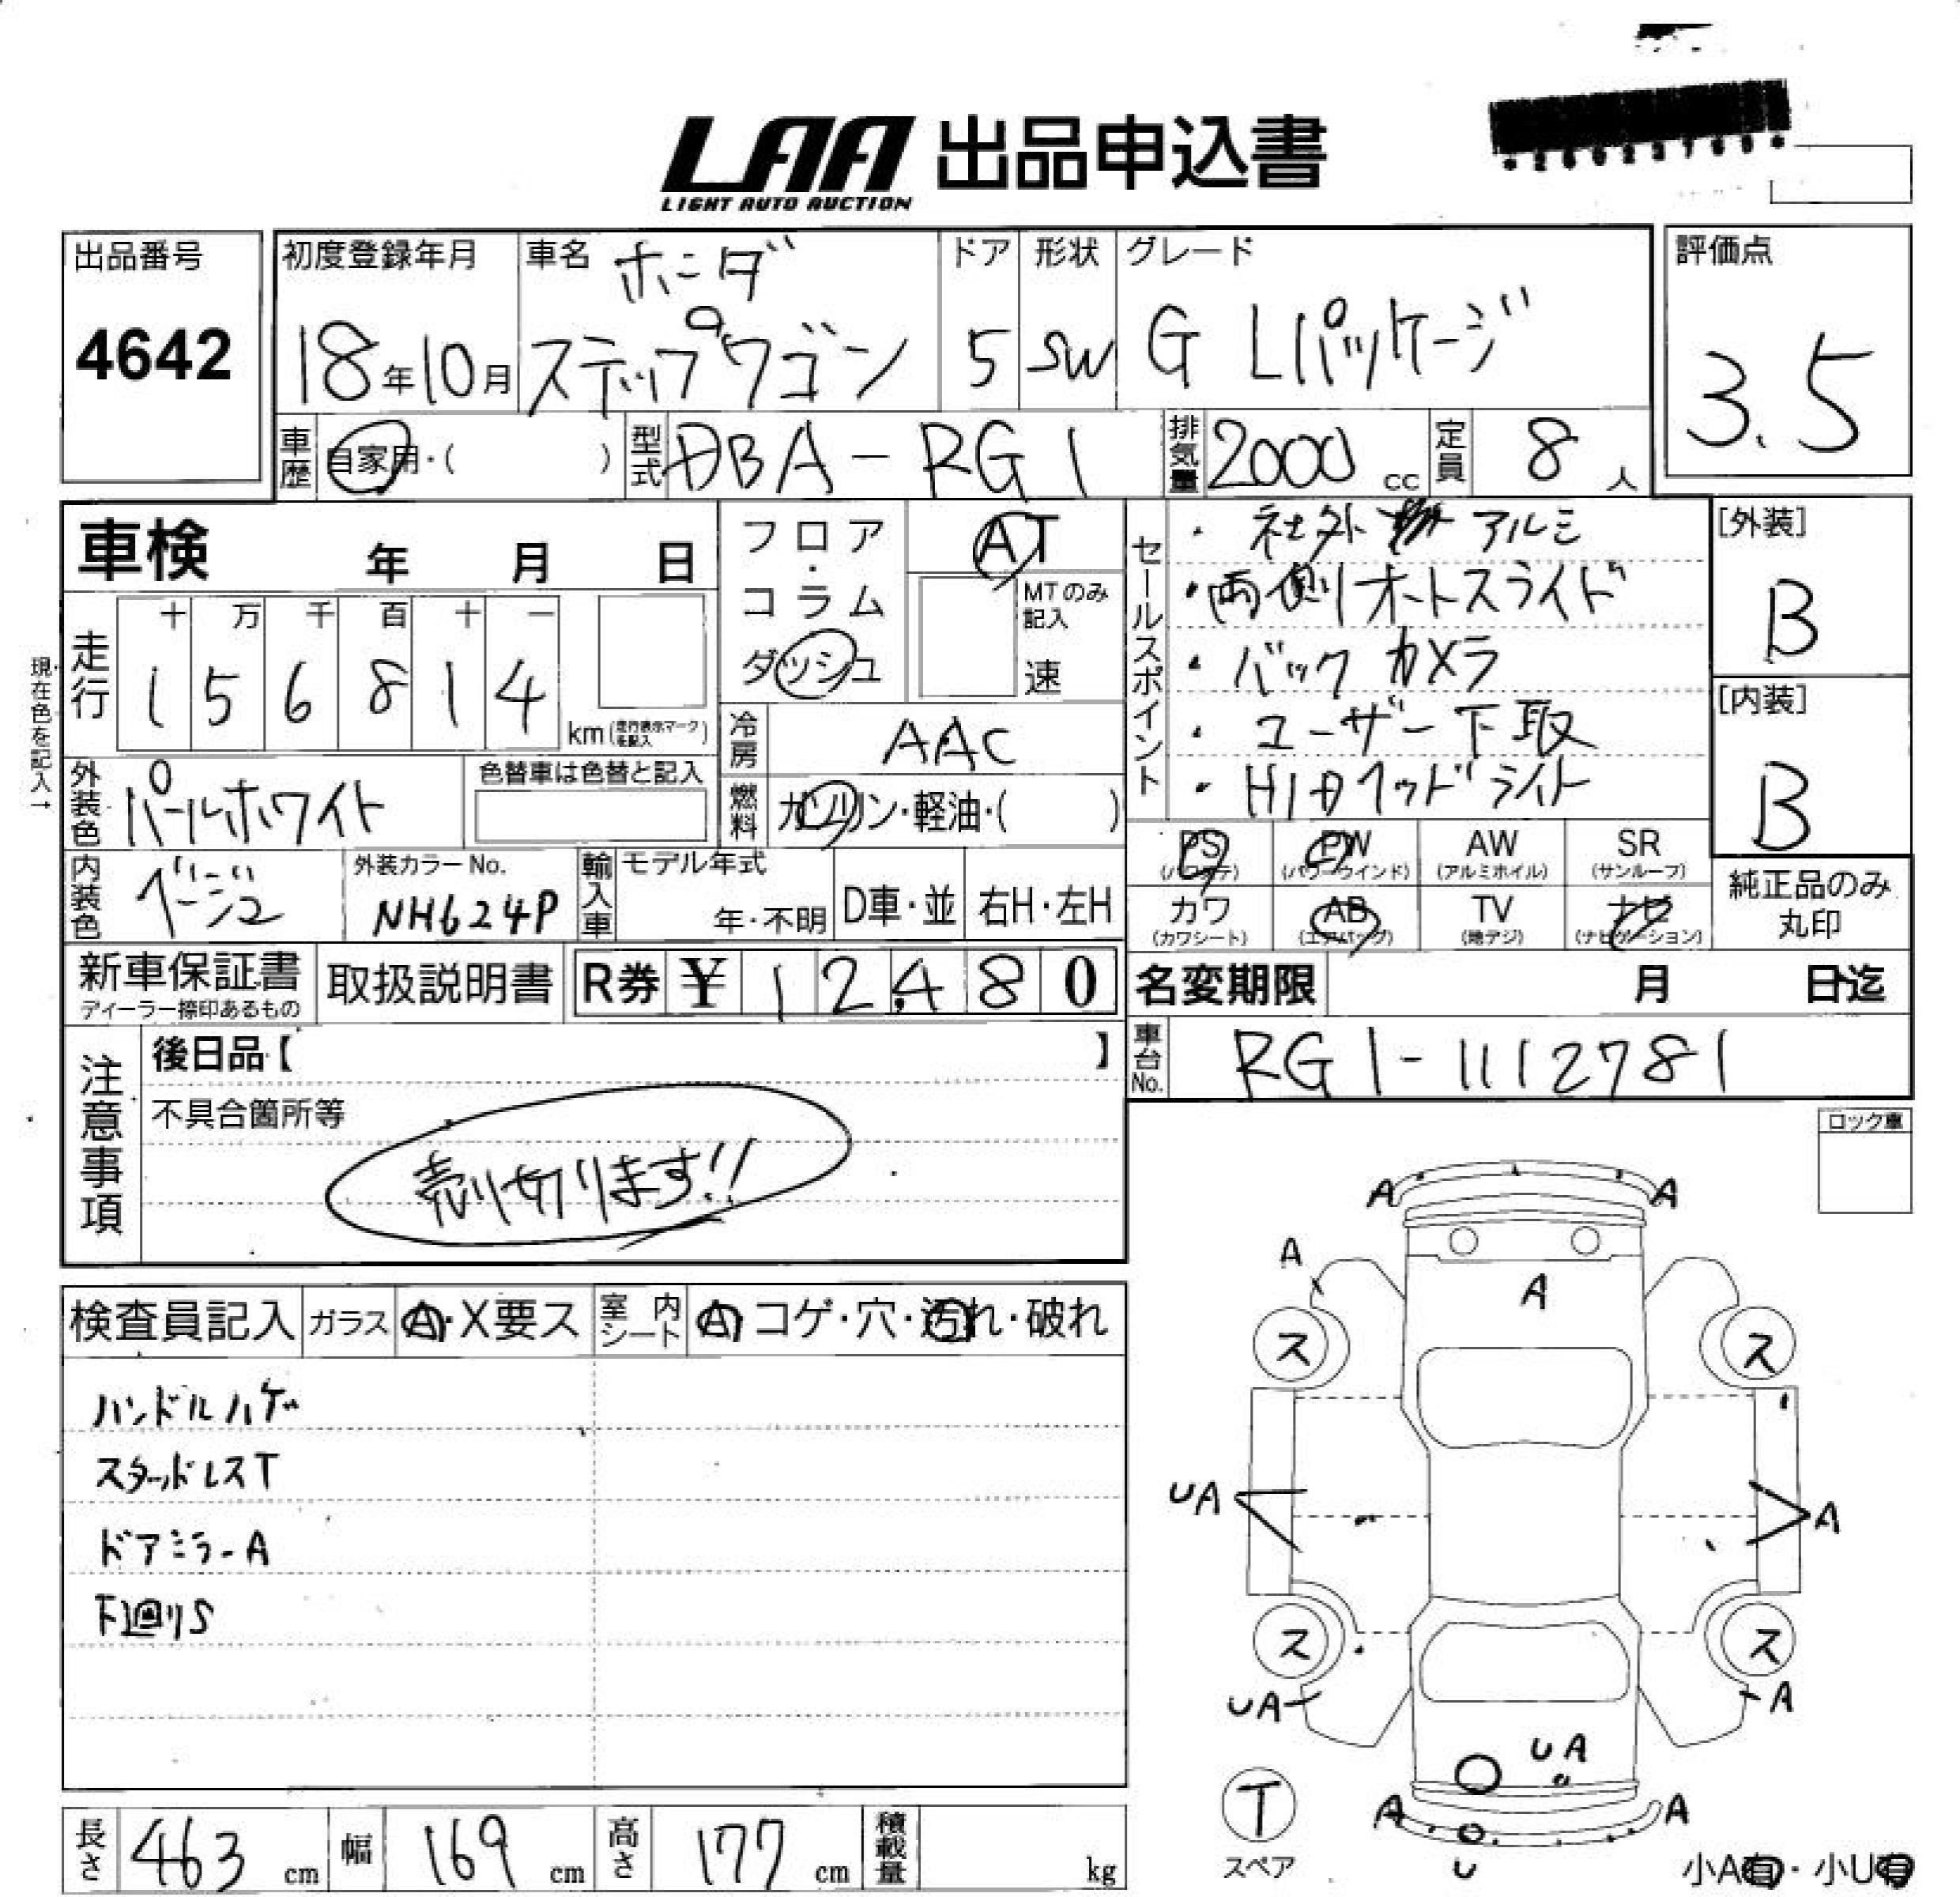 LAA 出品申込書
LIGHT AUTO AUCTION
出品番号
4642
初度登録年月
18年10月
車名
ホンダ
ステップワゴン
ドア
5
形状
SW
グレード
G Lパッケージ
評価点
3.5
車歴 自家用・( )
型式 DBA-RG1
排気量 2000 cc
定員 8 人
車検 年 月 日
現在色を記入→
走行
十 万 千 百 十 一
1 5 6 8 1 4
km(走行表示マークを記入)
フロア・コラム
ダッシュ
AT
MTのみ記入
速
冷房 AAC
燃料 ガソリン・軽油・( )
セールスポイント
・社外 アルミ
・両側オートスライド
・バックカメラ
・ユーザー下取
・HIDヘッドライト
[外装]
B
[内装]
B
外装色 パールホワイト
色替車は色替と記入
内装色 ベージュ
外装カラーNo.
NH624P
輸入車
モデル年式
年・不明
D車・並
右H・左H
PS
(パワステ)
PW
(パワーウインド)
AW
(アルミホイル)
SR
(サンルーフ)
カワ
(カワシート)
AB
(エアバッグ)
TV
(地デジ)
ナビ
(ナビゲーション)
純正品のみ
丸印
新車保証書
ディーラー捺印あるもの
取扱説明書
R券 ¥ 12,480
名変期限 月 日迄
車台No. RG1-1112781
注意事項
後日品【 】
不具合箇所等
売り切ります!!
ロック車
検査員記入
ガラス A・X要ス
室内シート A コゲ・穴・汚れ・破れ
ハンドルハゲ
スタッドレスT
ドアミラーA
下廻りS
A A
A
A
ス ス
UA A
ス ス
UA A
UA
A A
U
T
スペア
小A有・小U有
長さ 463 cm
幅 169 cm
高さ 177 cm
積載量 kg